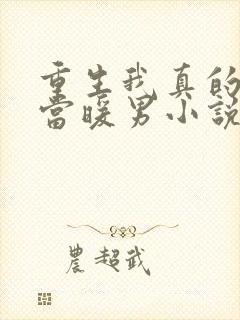 重生我真的
當暖男小說
農超武